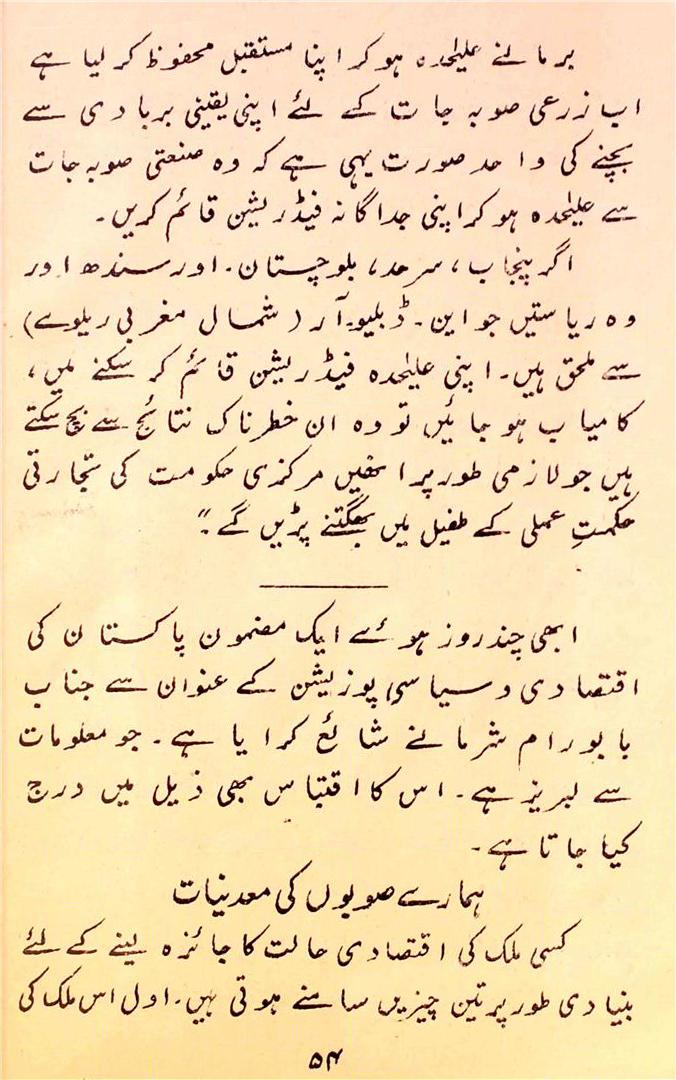 برما نے علیٰحدہ ہوکر اپنا مستقبل محفوظ کر لیا ہے
اب زرعی صوبہ جات کے لئے اپنی یقینی بربادی سے
بچنے کی واحد صورت یہی ہے کہ وہ صنعتی صوبہ جات
سے علیٰحدہ ہوکر اپنی جداگانہ فیڈریشن قائم کریں۔
اگر پنجاب، سرحد، بلوچستان۔ اور سندھ اور
وہ ریاستیں جو این۔ ڈبلیو۔ آر (شمال مغربی ریلوے)
سے ملحق ہیں۔ اپنی علیٰحدہ فیڈریشن قائم کر سکنے میں،
کامیاب ہو جائیں تو وہ ان خطرناک نتائج سے بچ سکتے
ہیں جو لازمی طور پر انھیں مرکزی حکومت کی تجارتی
حکمتِ عملی کے طفیل میں بھگتنے پڑیں گے۔"
ابھی چند روز ہوئے ایک مضمون پاکستان کی
اقتصادی و سیاسی پوزیشن کے عنوان سے جناب
بابو رام شرما نے شائع کرایا ہے۔ جو معلومات
سے لبریز ہے۔ اس کا اقتباس بھی ذیل میں درج
کیا جاتا ہے۔
ہمارے صوبوں کی معدنیات
کسی ملک کی اقتصادی حالت کا جائزہ لینے کے لئے
بنیادی طور پر تین چیزیں سامنے ہوتی ہیں۔ اول اس ملک کی
۵۴